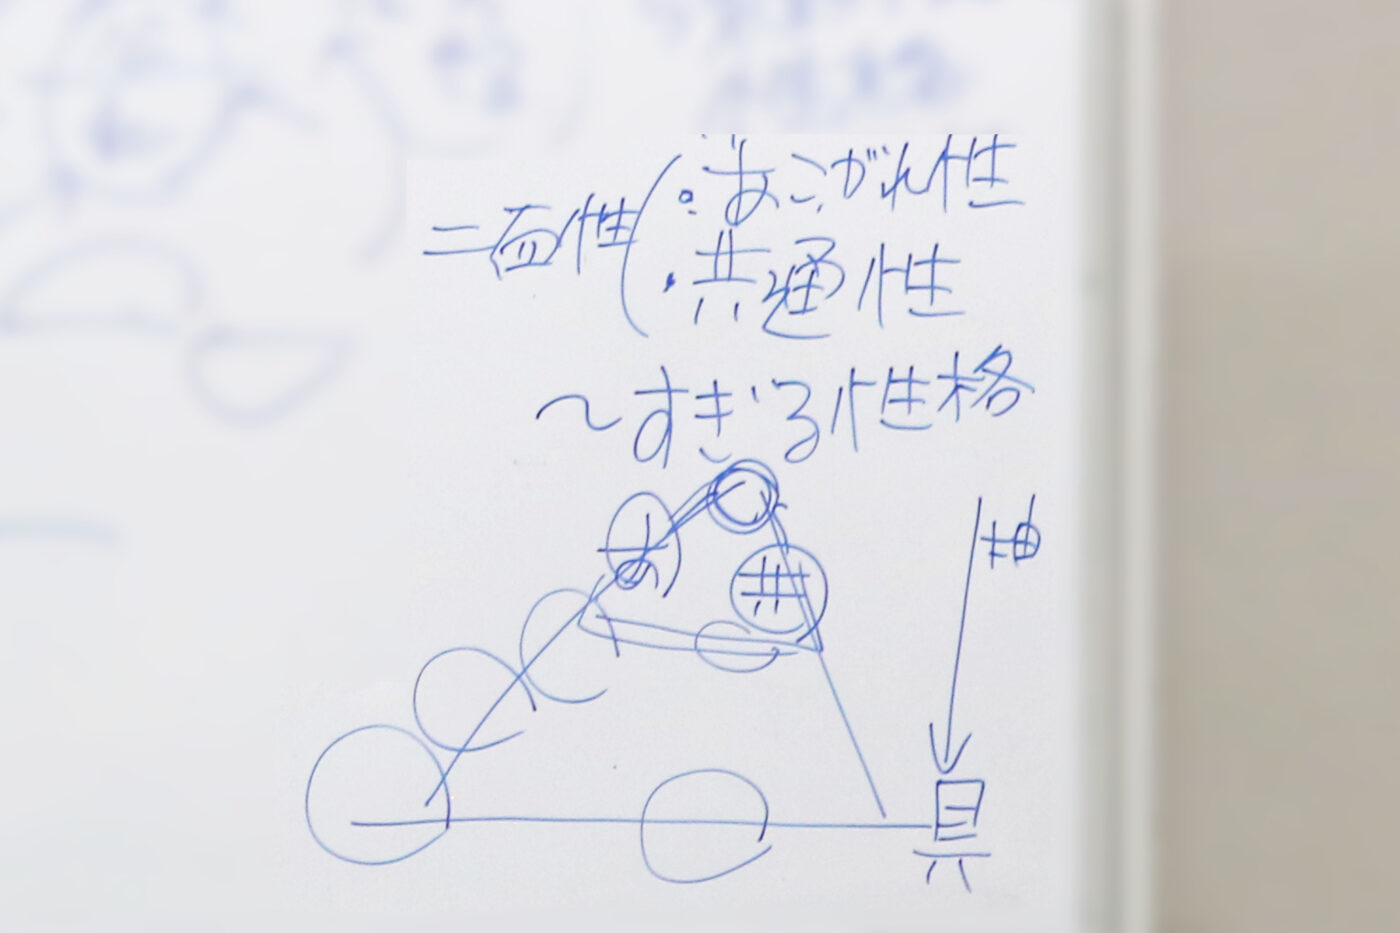 二面性(・あこがれ性
・共通性
〜すぎる性格
あ
共
抽
具